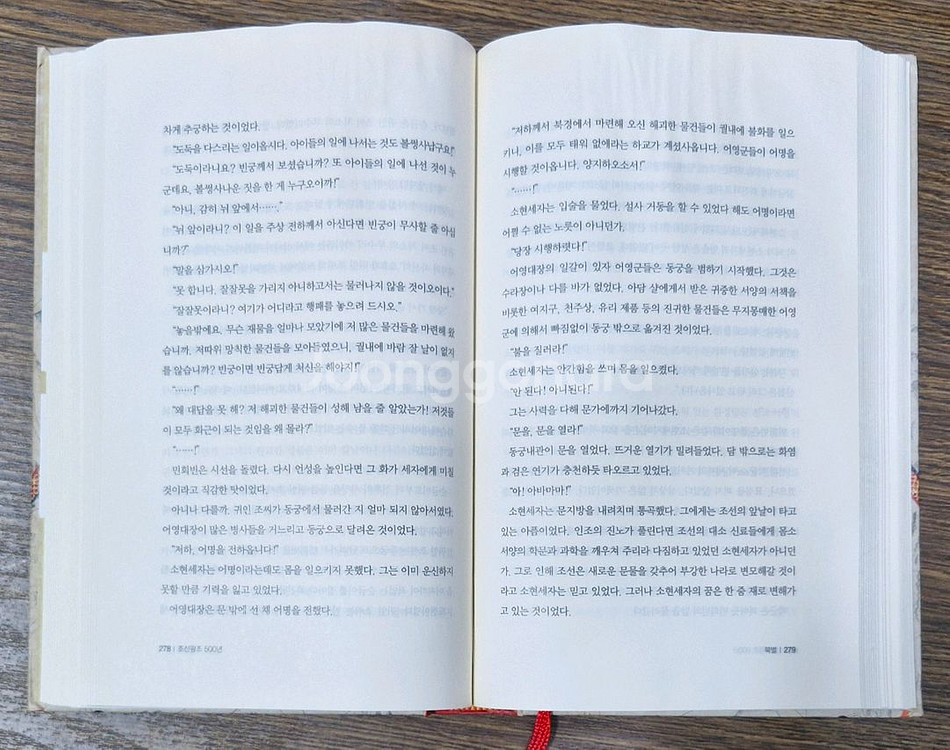 차게 추궁하는 것이었다.
"도둑을 다스리는 일이옵시다. 아이들의 일에 나서는 것도 볼썽사납구요!"
"도둑이라니요? 빈궁께서 보셨습니까? 또 아이들의 일에 나선 것이 누
군데요. 볼썽사나운 짓을 한 게 누구오이까!"
"아니, 감히 뉘 앞에서……."
"뉘 앞이라니? 이 일을 주상 전하께서 아신다면 빈궁이 무사할 줄 아십
니까?"
"말을 삼가시오!"
"못 합니다. 잘잘못을 가리지 아니하고서는 물러나지 않을 것이오이다."
"잘잘못이라니? 여기가 어디라고 행패를 놓으려 드시오."
"놓을밖에요. 무슨 재물을 얼마나 모았기에 저 많은 물건들을 마련해 왔
습니까. 저따위 망칙한 물건들을 모아들였으니, 궐내에 바람 잘 날이 없지
를 않습니까? 빈궁이면 빈궁답게 처신을 해야지!"
"……!"
"왜 대답을 못 해? 저 해괴한 물건들이 성해 남을 줄 알았는가! 저것들
이 모두 화근이 되는 것임을 왜 몰라?"
"……!"
민회빈은 시선을 돌렸다. 다시 언성을 높인다면 그 화가 세자에게 미칠
것이라고 직감한 탓이었다.
아니나 다를까. 귀인 조씨가 동궁에서 물러간 지 얼마 되지 않아서였다.
어영대장이 많은 병사들을 거느리고 동궁으로 달려온 것이었다.
"저하, 어명을 전하옵니다!"
소현세자는 어명이라는데도 몸을 일으키지 못했다. 그는 이미 운신하지
못할 만큼 기력을 잃고 있었다.
어영대장은 문 밖에 선 채 어명을 전했다.
278 | 조선왕조 500년
"저하께서 북경에서 마련해 오신 해괴한 물건들이 궐내에 불화를 일으
키니, 이를 모두 태워 없애라는 하교가 계셨사옵니다. 어영군들이 어명을
시행할 것이옵니다. 양지하오소서!"
"……!"
소현세자는 입술을 물었다. 설사 거동을 할 수 있었다 해도 어명이라면
어쩔 수 없는 노릇이 아니던가.
"당장 시행하렷다!"
어영대장의 일갈이 있자 어영군들은 동궁을 범하기 시작했다. 그것은
수라장이나 다를 바가 없었다. 아담 샬에게서 받은 귀중한 서양의 서책을
비롯한 여지구, 천주상, 유리 제품 등의 진귀한 물건들은 무지몽매한 어영
군에 의해서 빠짐없이 동궁 밖으로 옮겨진 것이었다.
"불을 질러라!"
소현세자는 안간힘을 쓰며 몸을 일으켰다.
"안 된다! 아니된다!"
그는 사력을 다해 문가에까지 기어나갔다.
"문을, 문을 열라!"
동궁내관이 문을 열었다. 뜨거운 열기가 밀려들었다. 담 밖으로는 화염
과 검은 연기가 충천하듯 타오르고 있었다.
"아! 아바마마!"
소현세자는 문지방을 내려치며 통곡했다. 그에게는 조선의 앞날이 타고
있는 아픔이었다. 인조의 진노가 풀린다면 조선의 대소 신료들에게 몸소
서양의 학문과 과학을 깨우쳐 주리라 다짐하고 있었던 소현세자가 아니던
가. 그로 인해 조선은 새로운 문물을 갖추어 부강한 나라로 변모해갈 것이
라고 소현세자는 믿고 있었다. 그러나 소현세자의 꿈은 한 줌 재로 변해가
고 있는 것이었다.
북벌 | 279